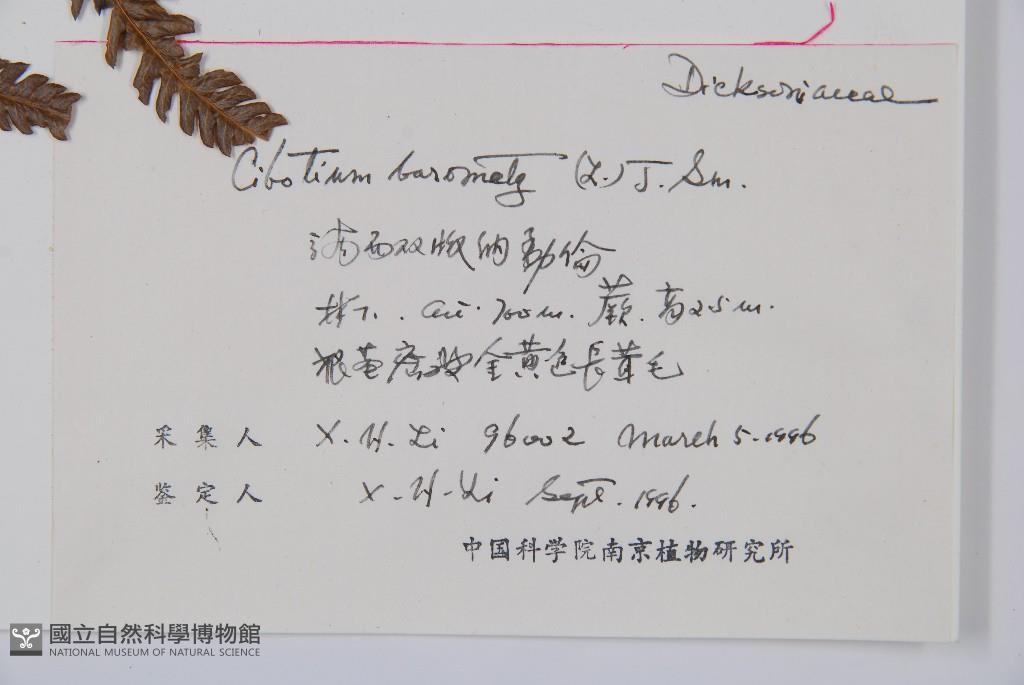 Dicksoniaceae
Cibotium barometz (L.) J. Sm.
西双版纳勐侖
林下. alt. 700 m. 蕨. 高 2.5 m.
根莖密被金黄色長茸毛
采集人 X. H. Li 96002 March 5. 1996
鉴定人 X. H. Li Sept. 1996.
中国科学院南京植物研究所
國立自然科學博物館
NATIONAL MUSEUM OF NATURAL SCIENCE